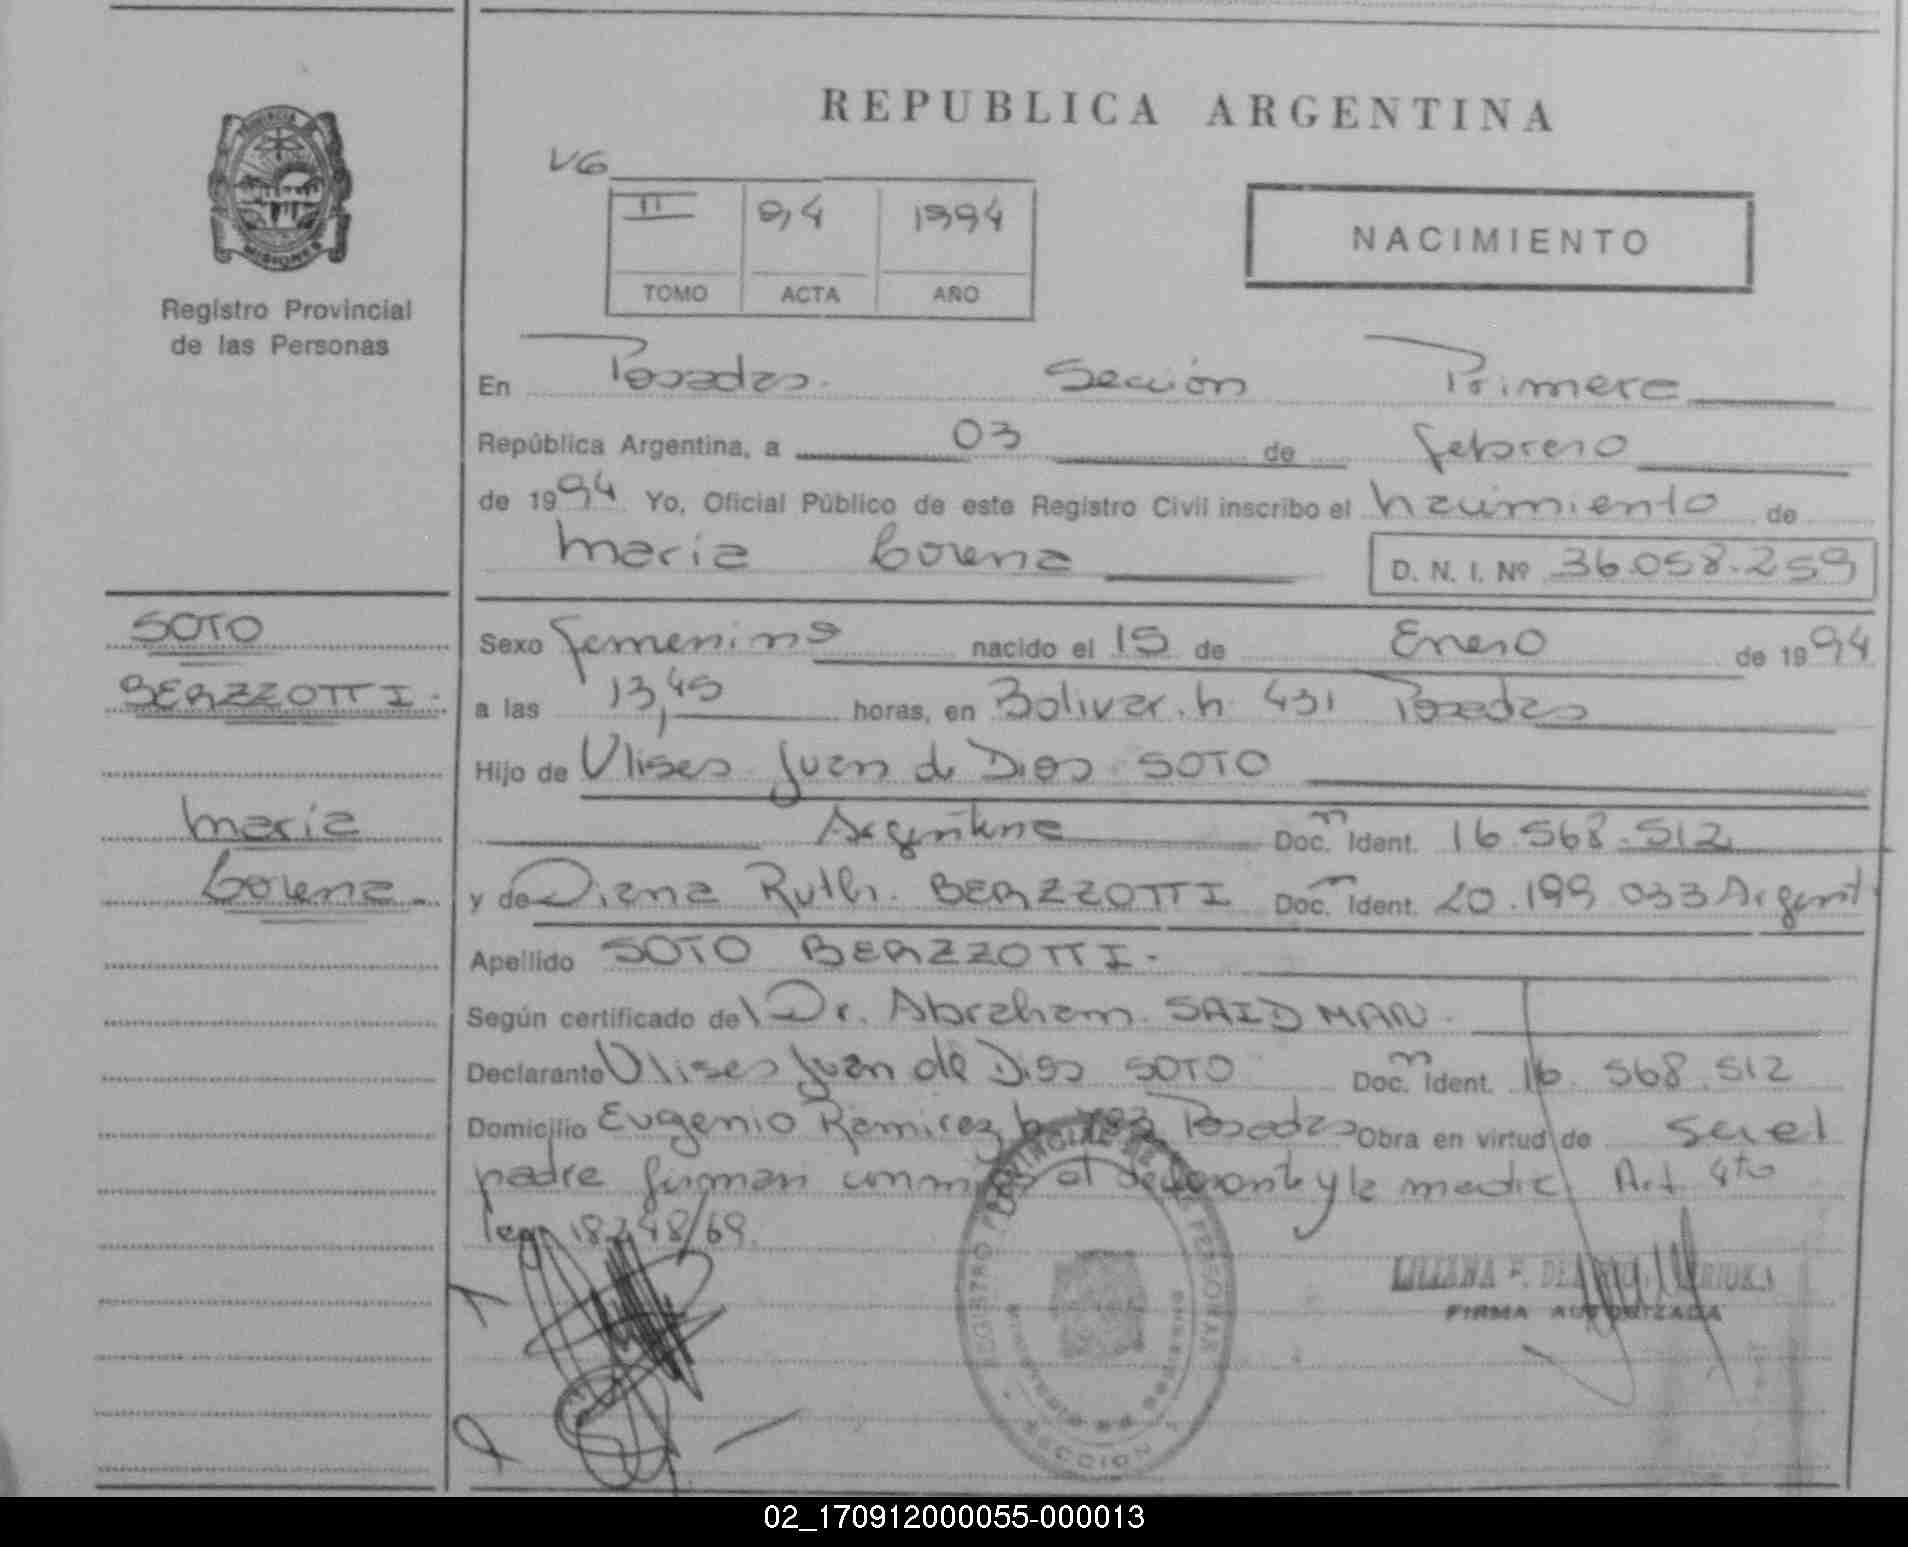 REPUBLICA ARGENTINA
PROVINCIA
MISIONES
Registro Provincial
de las Personas
VG
II 94 1994
TOMO ACTA AÑO
NACIMIENTO
En Posadas. Sección Primera
República Argentina, a 03 de febrero
de 1994 Yo, Oficial Público de este Registro Civil inscribo el nacimiento de
Maria Lorena D. N. I. Nº 36.058.259
SOTO
BERZZOTTI.
Maria
Lorena.
Sexo femenino nacido el 15 de Enero de 1994
a las 13,45 horas, en Bolivar. n 431 Posadas
Hijo de Ulises Juan de Dios SOTO
Argentina Doc. Ident. 16.568.512
y de Diana Ruth. BERZZOTTI Doc. Ident. 20.199 033 Argent
Apellido SOTO BERZZOTTI.
Según certificado del Dr. Abraham SAIDMAN.
Declarante Ulises Juan de Dios SOTO Doc. Ident. 16.568.512
Domicilio Eugenio Ramirez Posadas Obra en virtud de ser el
padre firman conmigo el declarante y la madre Art 4to
ley 18248/69.
REGISTRO PROVINCIAL DE PERSONAS
SECCION 1
LILIANA F.
FIRMA AUTORIZADA
02_170912000055-000013